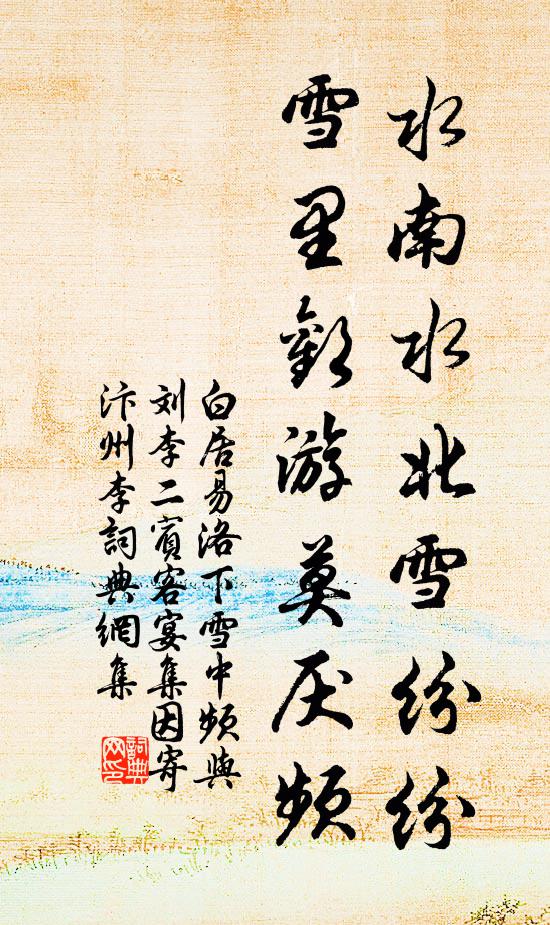 水南水北雪纷纷
雪里歡游莫厌频
白居易洛下雪中频與
刘李二賓客宴集因寄
汴州李詞典網集
詞典
网印